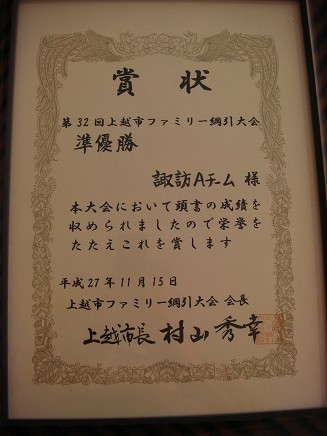 賞状
第32回上越市ファミリー綱引大会
準優勝
諏訪Aチーム 様
本大会において頭書の成績を
収められましたので栄誉を
たたえこれを賞します
平成27年11月15日
上越市ファミリー綱引大会 会長
上越市長 村山秀幸